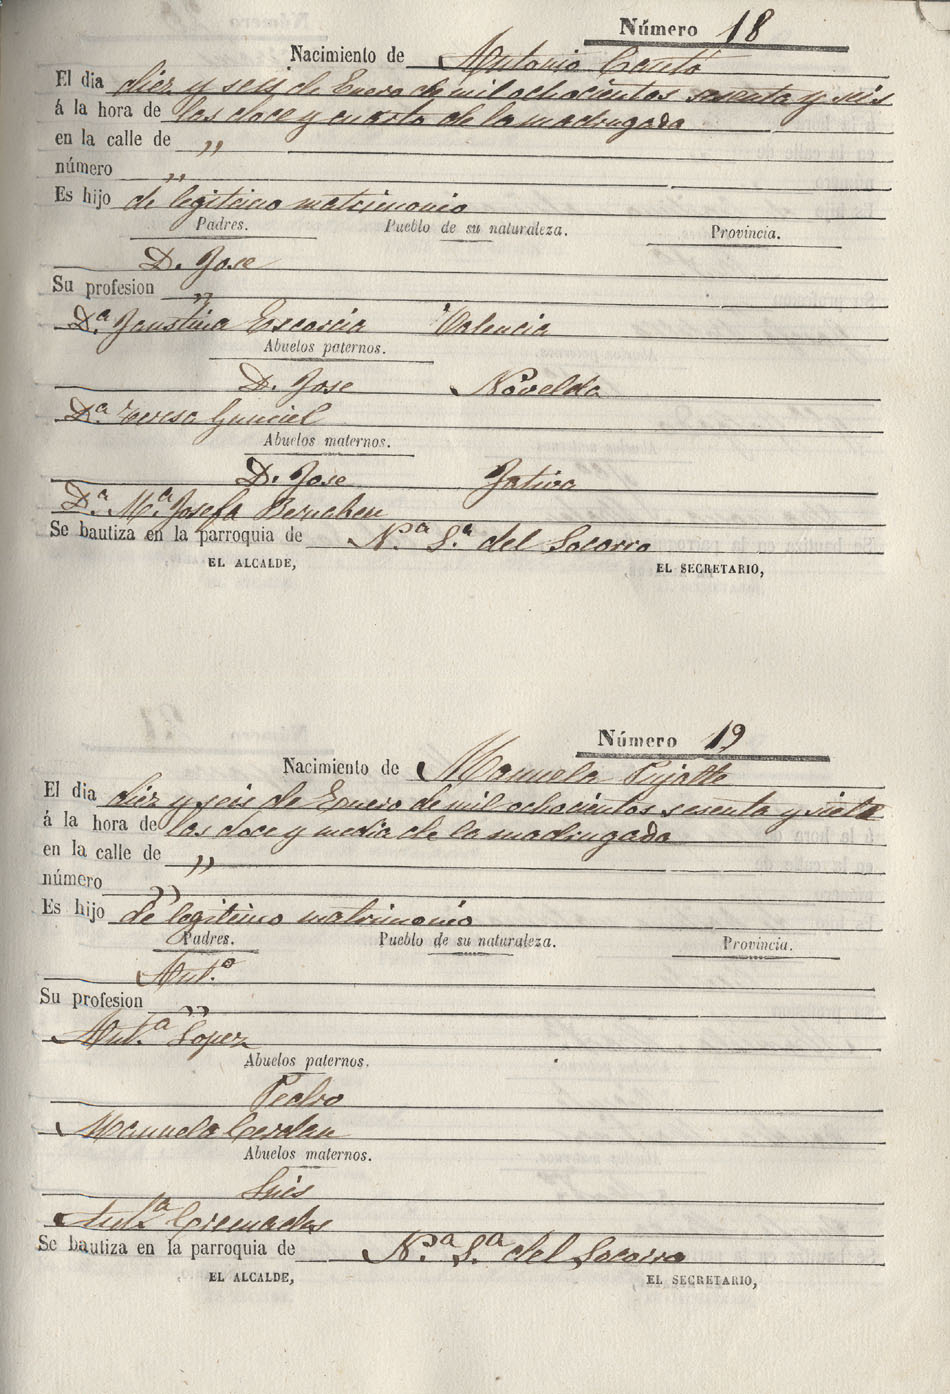 Número 18
Nacimiento de Antonio Cantó
El dia diez y seis de Enero de mil ochocientos sesenta y seis
á la hora de las doce y cuarto de la madrugada
en la calle de ,,
número ,,
Es hijo de legitimo matrimonio
Padres. Pueblo de su naturaleza. Provincia.
D. Jose
Su profesion ,,
D.ª Faustina Escorcia Valencia
Abuelos paternos.
D. Jose Novelda
D.ª Teresa
Abuelos maternos.
D. Jose Jativa
D.ª M.ª Josefa
Se bautiza en la parroquia de N.ª S.ª del Socorro
EL ALCALDE, EL SECRETARIO,
Número 19
Nacimiento de Manuela Pujalte
El dia diez y seis de Enero de mil ochocientos sesenta y siete
á la hora de las doce y media de la madrugada
en la calle de ,,
número ,,
Es hijo de legitimo matrimonio
Padres. Pueblo de su naturaleza. Provincia.
Ant.º
Su profesion ,,
Ant.ª Lopez
Abuelos paternos.
Pedro
Manuela Cerdan
Abuelos maternos.
Luis
Ant.ª Cremades
Se bautiza en la parroquia de N.ª S.ª del Socorro
EL ALCALDE, EL SECRETARIO,